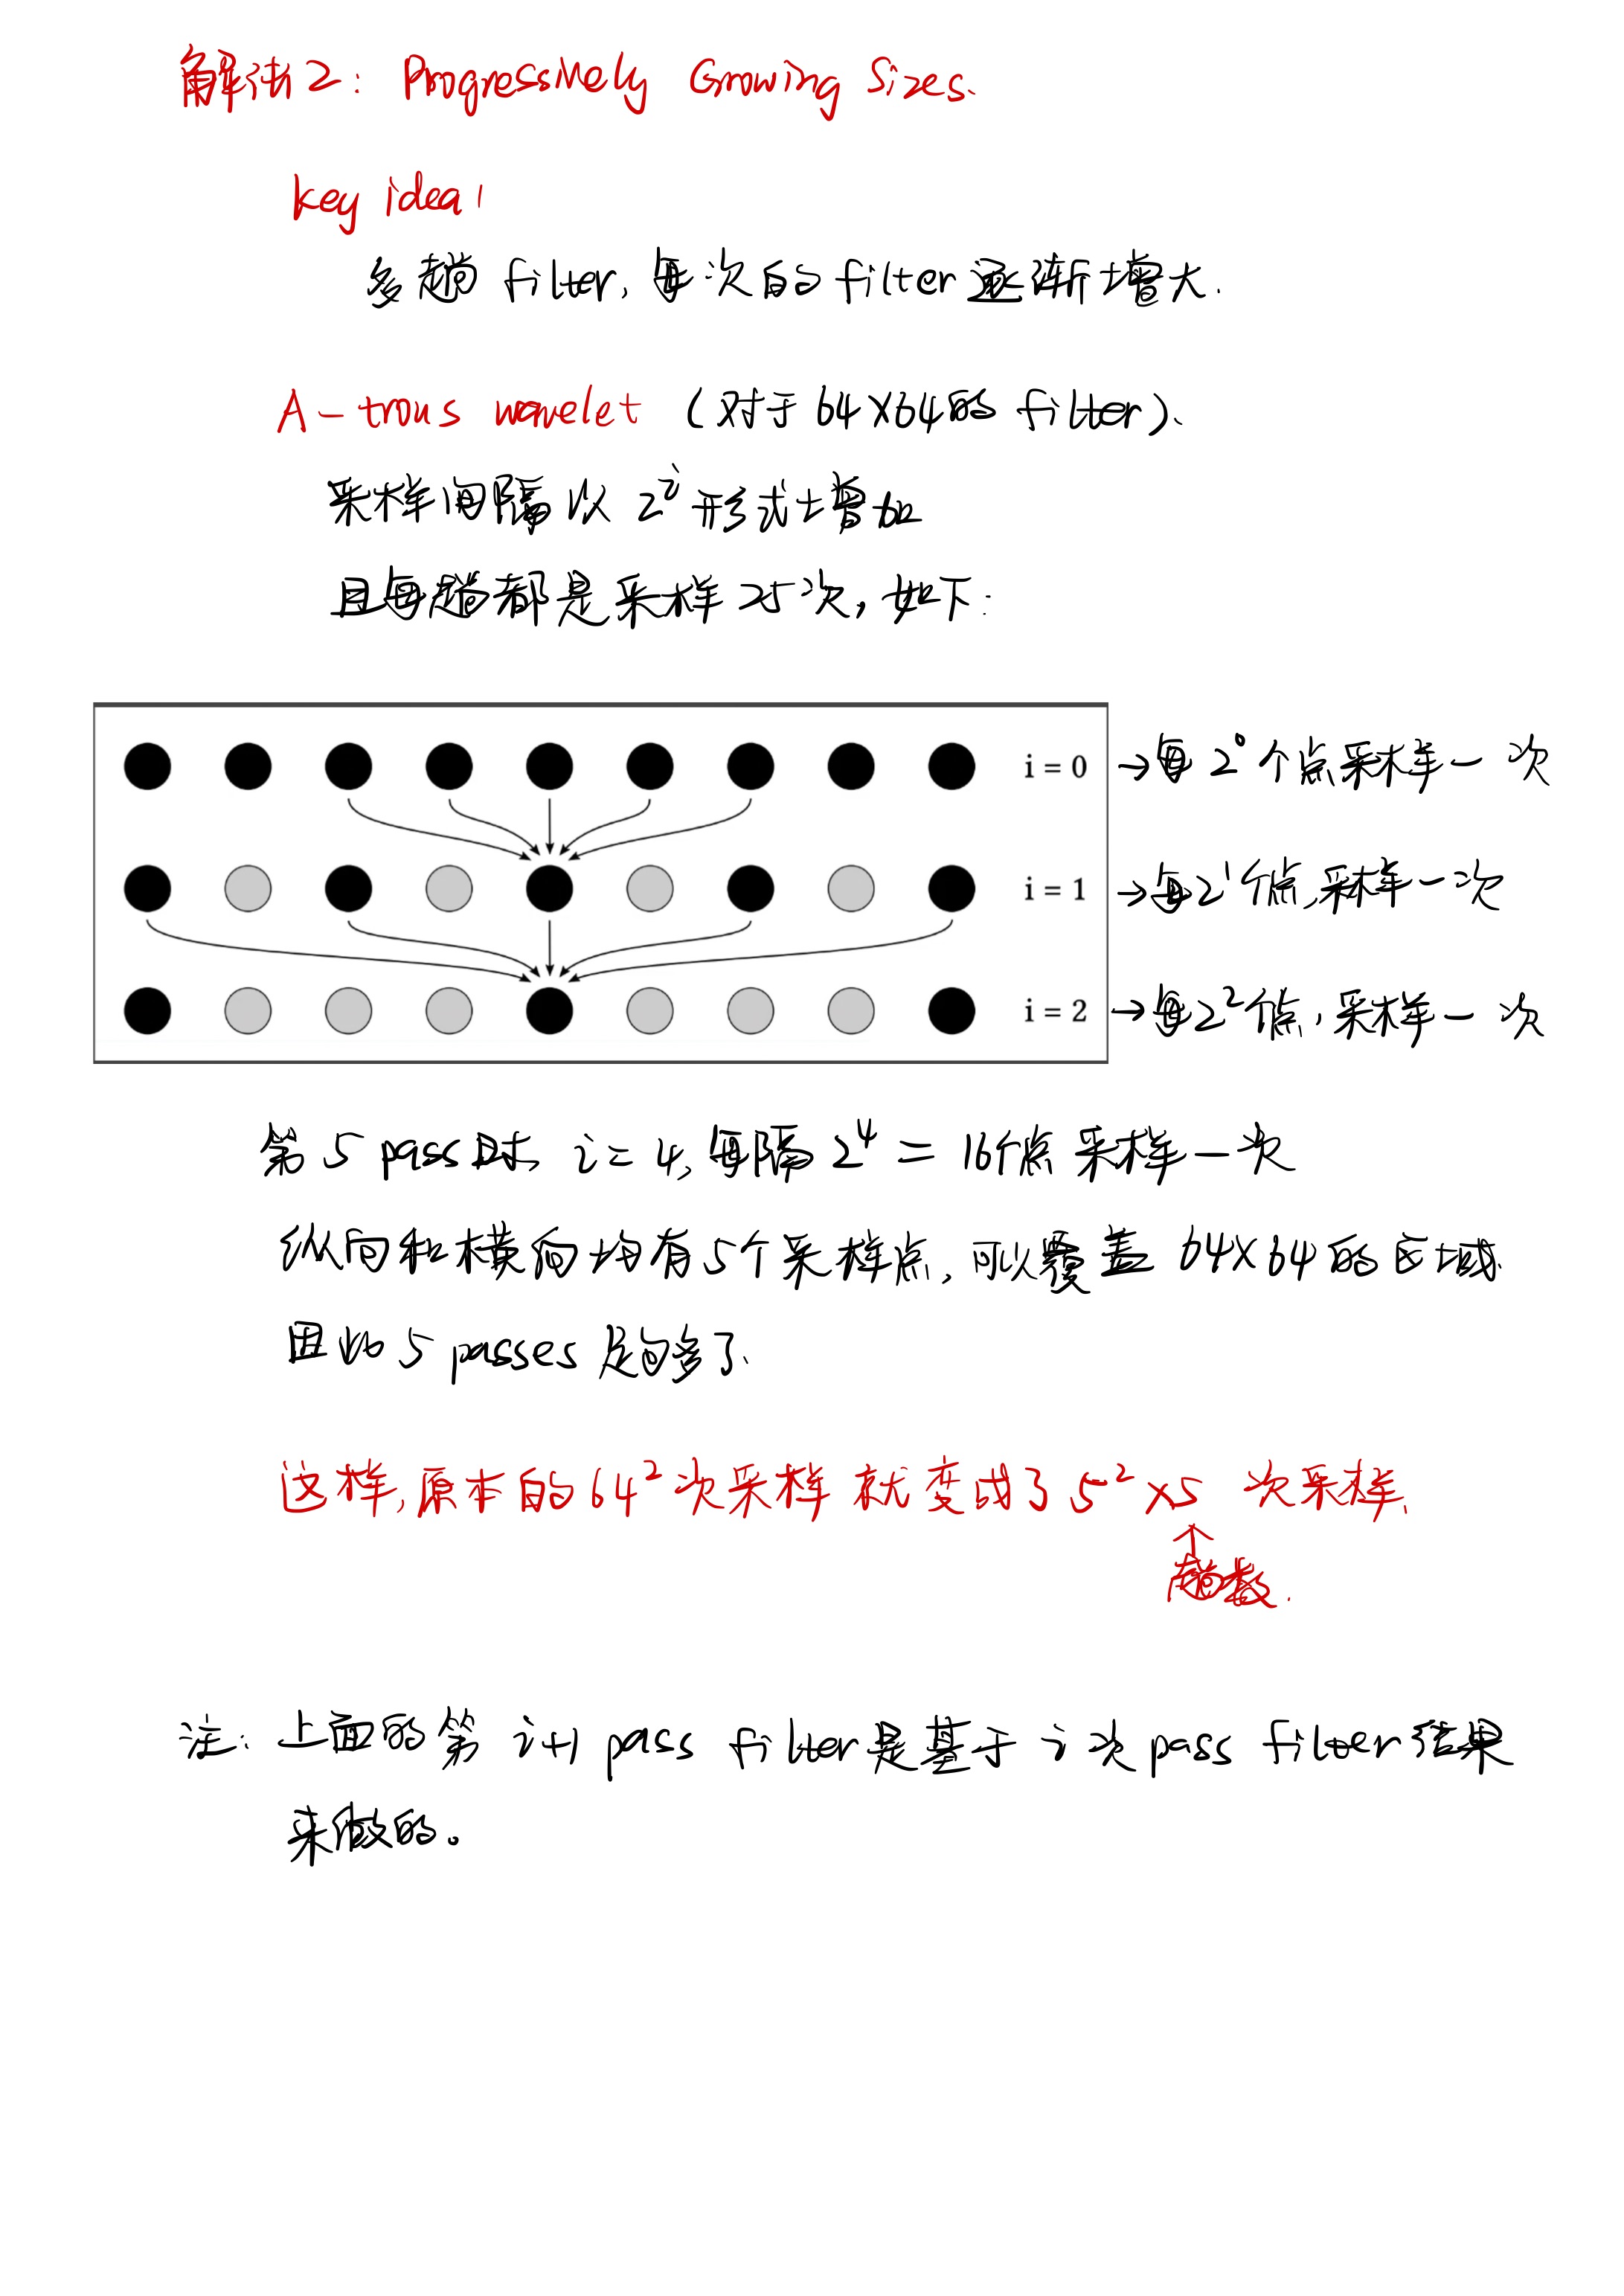 解法2: Progressively Growing Sizes.
key idea:
多趟 filter, 每次的 filter 逐渐增大.
A-trous wavelet (对于 64X64的 filter).
采样间隔以 2^i 形式增加
且每趟都是采样25次, 如下:
i = 0 →每 2^0 个点采样一次
i = 1 →每2^1个点,采样一次
i = 2 →每2^2个点,采样一次
第 5 pass时, i = 4, 每隔 2^4 = 16个点 采样一次
纵向和横向均有5个采样点, 可以覆盖 64X64的区域.
因此 5 passes 足够多了.
这样,原本的 64^2次采样 就变成了 5^2 ×5 次采样.
↑
趟数.
注: 上面的第 i+1 pass filter是基于 i 次 pass filter结果
来做的。